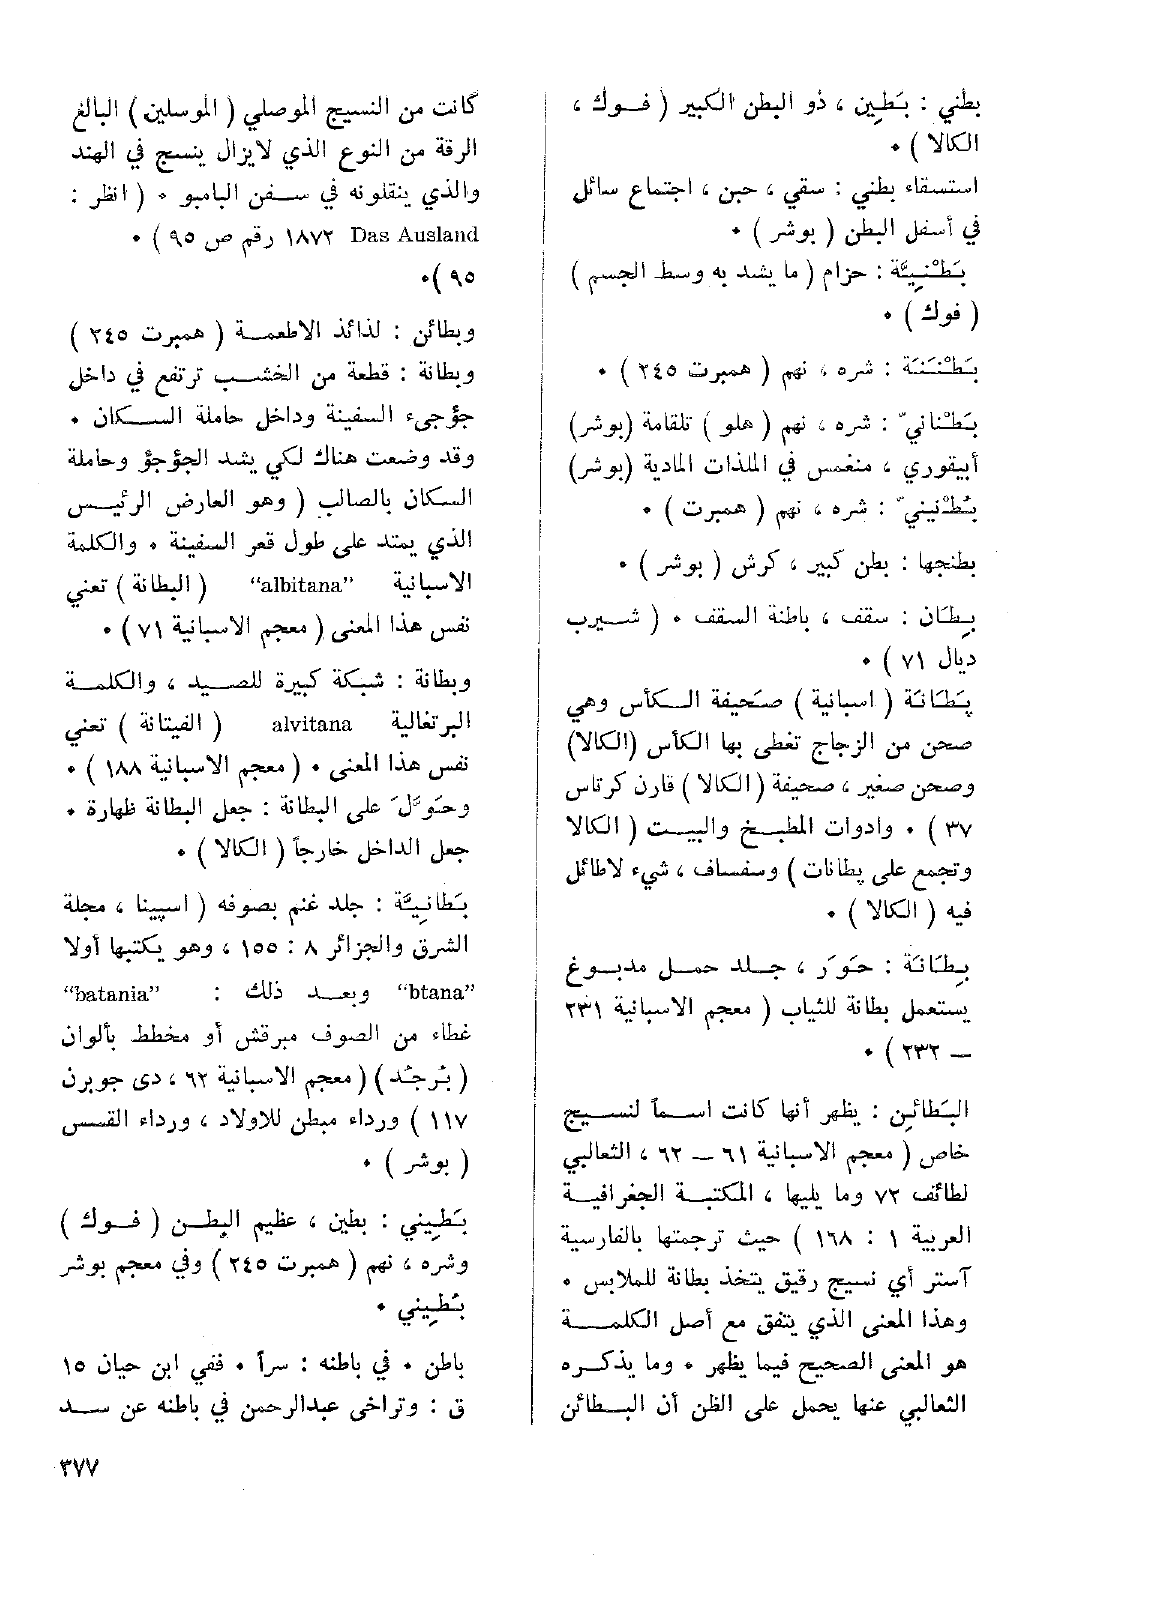 بطني : بَطِين ، ذو البطن الكبير ( فوك ،
الكالا ) •
استسقاء بطني : سقي ، حبن ، اجتماع سائل
في أسفل البطن ( بوشر ) •
بَطْنِيَّة : حزام ( ما يشد به وسط الجسم )
( فوك ) •
بَطْنَنَة : شره ، نهم ( همبرت ٢٤٥ ) •
بَطْناني ّ : شره ، نهم ( هلو ) تلقامة (بوشر)
أبيقوري ، منغمس في الملذات المادية (بوشر)
بُطْنيني ّ : شره ، نهم ( همبرت ) •
بطنجها : بطن كبير ، كرش ( بوشر ) •
بِطَان : سقف ، باطنة السقف • ( شيرب
ديال ٧١ ) •
پَطَانَة ( اسبانية ) صَحيفة الكأس وهي
صحن من الزجاج تغطى بها الكأس (الكالا)
وصحن صغير ، صحيفة ( الكالا ) قارن كرتاس
٣٧ ) • وادوات المطبخ والبيت ( الكالا
وتجمع على پطانات ) وسفساف ، شيء لاطائل
فيه ( الكالا ) •
بِطَانَة : حَوَر ، جلد حمل مدبوغ
يستعمل بطانة للثياب ( معجم الاسبانية ٢٣١
— ٢٣٢ ) •
البَطائِن : يظهر أنها كانت اسماً لنسيج
خاص ( معجم الاسبانية ٦١ — ٦٢ ، الثعالبي
لطائف ٧٢ وما يليها ، المكتبة الجغرافية
العربية ١ : ١٦٨ ) حيث ترجمتها بالفارسية
آستر أي نسيج رقيق يتخذ بطانة للملابس •
وهذا المعنى الذي يتفق مع أصل الكلمة
هو المعنى الصحيح فيما يظهر • وما يذكره
الثعالبي عنها يحمل على الظن أن البطائن
كانت من النسيج الموصلي ( الموسلين ) البالغ
الرقة من النوع الذي لايزال ينسج في الهند
والذي ينقلونه في سفن البامبو • ( انظر :
Das Ausland ١٨٧٢ رقم ص ٩٥ ) •
٩٥ )•
وبطائن : لذائذ الاطعمة ( همبرت ٢٤٥ )
وبطانة : قطعة من الخشب ترتفع في داخل
جؤجىء السفينة وداخل حاملة السكان •
وقد وضعت هناك لكي يشد الجؤجؤ وحاملة
السكان بالصالب ( وهو العارض الرئيس
الذي يمتد على طول قعر السفينة • والكلمة
الاسبانية “albitana” ( البطانة ) تعني
نفس هذا المعنى ( معجم الاسبانية ٧١ ) •
وبطانة : شبكة كبيرة للصيد ، والكلمة
البرتغالية alvitana ( الفيتانة ) تعني
نفس هذا المعنى • ( معجم الاسبانية ١٨٨ ) •
وحَوَّلَ على البطانة : جعل البطانة ظهارة •
جعل الداخل خارجاً ( الكالا ) •
بَطانِيَّة : جلد غنم بصوفه ( اسپينا ، مجلة
الشرق والجزائر ٨ : ١٥٥ ، وهو يكتبها أولا
“btana” وبعد ذلك : “batania”
غطاء من الصوف مبرقش أو مخطط بألوان
( بُرجُد ) ( معجم الاسبانية ٦٢ ، دى جوبرن
١١٧ ) ورداء مبطن للاولاد ، ورداء القس
( بوشر ) •
بَطِيني : بطين ، عظيم البطن ( فوك )
وشره ، نهم ( همبرت ٢٤٥ ) وفي معجم بوشر
بُطِيني •
باطن • في باطنه : سراً • ففي ابن حيان ١٥
ق : وتراخى عبدالرحمن في باطنه عن سد
٣٧٧